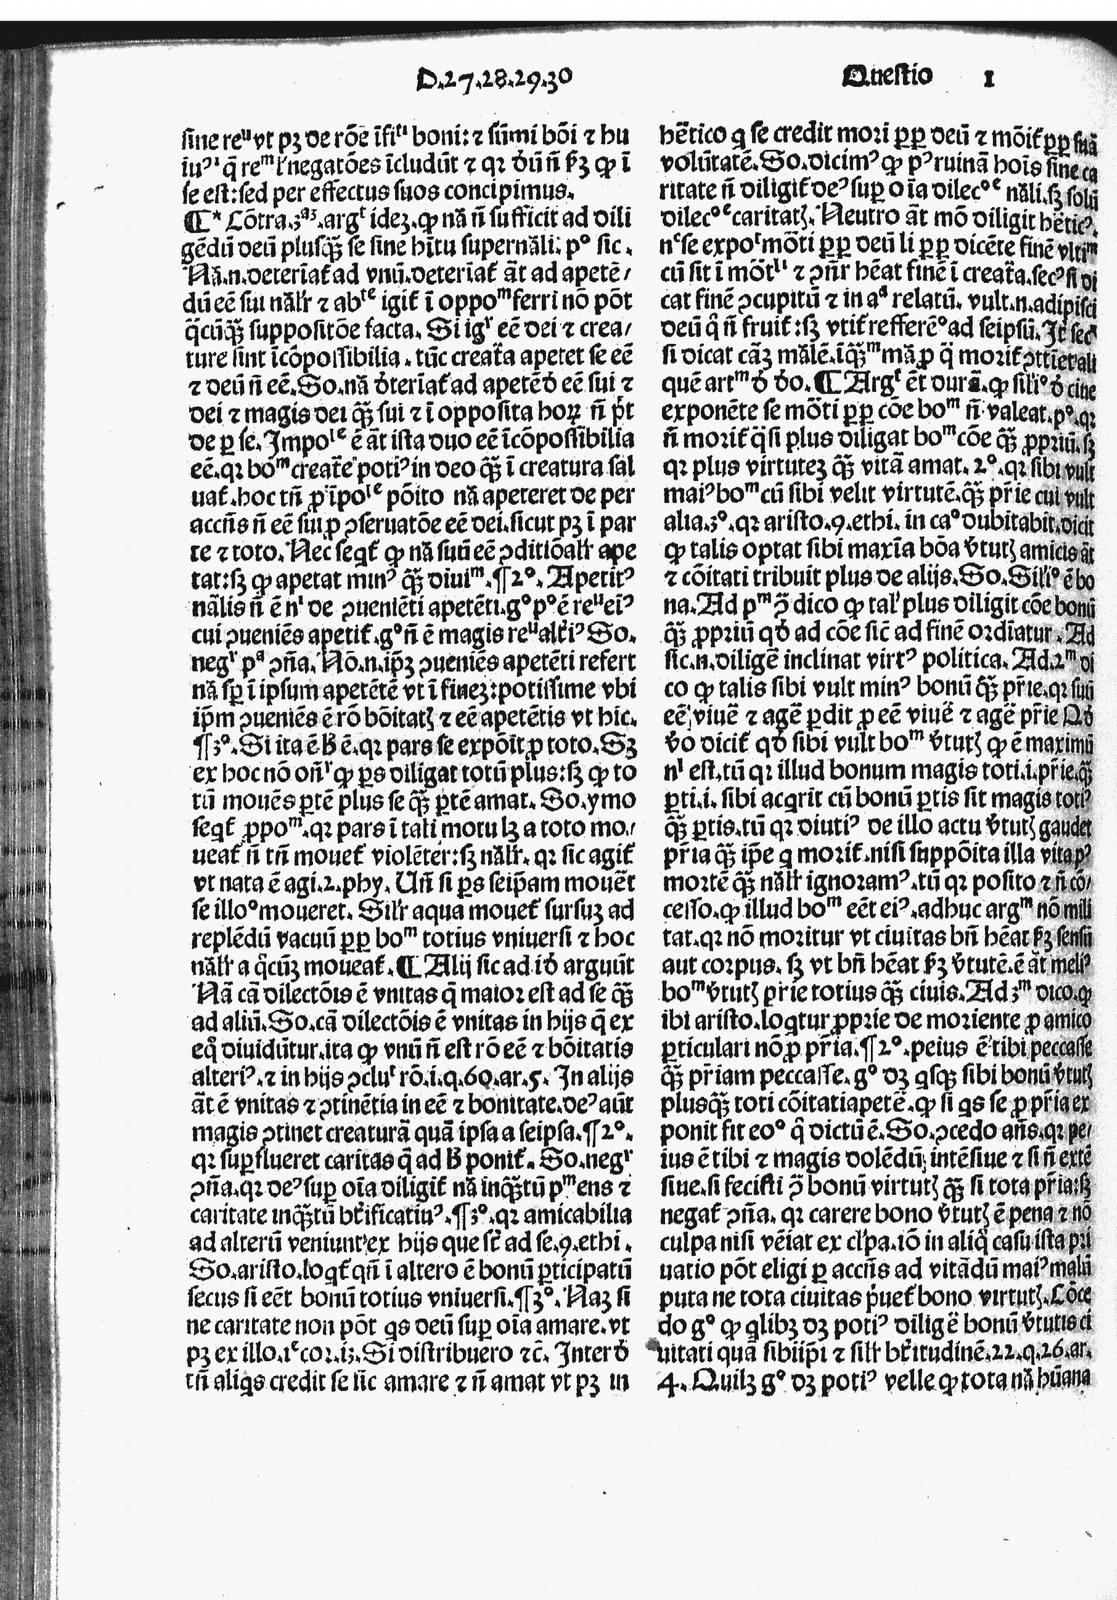 D.27.28.29.30
Questio 1
sine reuͧ vt pꝫ de rōe īfiᵗⁱ boni: ⁊ sūmi bōi ⁊ hu
se est: sed per effectus suos concipimus.
¶ Cōtra. argᵗ ideꝫ. ꝙ nā ñ sufficit ad dili
gēdū deū plusq̄ꝫ se sine hītu supernāli: pᵒ sic.
Nā.n.determiat̄ ad vnū. determiat̄ āt ad apetē/
dū eē sui nālr̄ ⁊ abᵗᵉ igit̄ ī oppoᵐ ferri nō pōt
q̄cūq̄ꝫ suppositōe facta. Si igʳ eē dei ⁊ crea/
ture sint īcōpossibilia. tūc creat̄a apetet se eē
⁊ deū ñ eē. So. nā đteriat̄ ad apetēđ eē sui ⁊
dei ⁊ magis dei q̄ꝫ sui ⁊ ī opposita hoꝝ ñ p̄t
de ꝑ se. Impoˡᵉ ē āt ista duo eē īcōpossibilia
eē. qꝛ boᵐ creat̄e potiꝰ in deo q̄ꝫ ī creatura sal
uat̄. hoc tñ ꝓ īpoˡᵉ pōito nā apeteret de per
accñs ñ eē sui ꝓ ꝯseruatōe eē dei. sicut pꝫ ī par
te ⁊ toto. Nec seqt̄ ꝙ nā suū eē ꝯditiōalr̄ ape
tat: sꝫ ꝙ apetat minꝰ q̄ꝫ diuiᵐ. ¶2ᵒ. Apetitꝰ
nālis ñ ē nˡ de ꝯueniēti apetēti. gᵒ pᵒ ē reᵘ eiꝰ
cui ꝯueniēs apetit̄. gᵒ ñ ē magis reᵘ altīꝰ So.
negʳ pᵃ ꝯña. Nō.n. ip̄ꝫ ꝯueniēs apetēti refert
nā sꝑ ī ipsum apetētē vt ī fineꝫ: potissime vbi
ip̄m ꝯueniēs ē rō bōitatꝫ ⁊ eē apetētis vt hic.
¶3ᵒ. Si ita ē ꝧ ē. qꝛ pars se expōit ꝓ toto. Sꝫ
ex hoc nō oñʳ ꝙ ꝑs diligat totū plus: sꝫ ꝙ to
tū mouēs ꝑtē plus se q̄ꝫ ꝑtē amat. So. ymo
seqt̄ ꝓpoᵐ. qꝛ pars ī tali motu lꝫ a toto mo/
ueat̄ ñ tñ mouet̄ violēter: sꝫ nālr̄. qꝛ sic agit̄
vt nata ē agi. 2. phy. Uñ si ꝑs seip̄am mouēt
se illoᵒ moueret. Silr̄ aqua mouet̄ sursuꝫ ad
replēdū vacuū ꝓꝑ boᵐ totius vniuersi ⁊ hoc
nālr̄ a q̄cūꝫ moueat̄. ¶ Alij sic ad iđ arguūt
Nā cā dilectōis ē vnitas q̄ maior est ad se q̄ꝫ
ad aliū. So. cā dilectōis ē vnitas in hijs q̄ ex
eq̄ diuidūtur. ita ꝙ vnū ñ est rō eē ⁊ bōitatis
alteriꝰ. ⁊ in hijs ꝯcluᵗ rō. i. q. 60. ar. 5. In alijs
āt ē vnitas ⁊ ꝯtinētia in eē ⁊ bonitate. deꝰ aūt
magis ꝯtinet creaturā quā ipsa a seipsa. ¶2ᵒ.
qꝛ suꝑflueret caritas q̄ ad ꝧ ponit̄. So. negʳ
ꝯña. qꝛ deꝰ suꝑ oīa diligit̄ nā inq̄ꝫtū pᵐ ens ⁊
caritate inq̄ꝫtū bt̄ificatiuꝰ. ¶3ᵒ. qꝛ amicabilia
ad alterū veniunt ex hijs que st̄ ad se. 9. ethi.
So. aristo. loqt̄ qñ ī altero ē bonū ꝑticipatū
secus si eēt bonū totius vniuersi. ¶3ᵒ. Naꝫ si
ne caritate non pōt qs deū suꝑ oīa amare. vt
pꝫ ex illo. 1ᵉ cor. 13. Si distribuero ⁊c̄. Interđ
tñ aliqs credit se sic amare ⁊ ñ amat vt pꝫ in
hētico q se credit mori ꝓꝑ deū ⁊ mōit̄ ꝓꝑ suā
volūtatē. So. dicimꝰ ꝙ pꝰ ruinā hoīs sine ca
ritate ñ diligit̄ deꝰ suꝑ oīa dilecᵒᵉ nāli. sꝫ solū
dilecᵒᵉ caritatꝫ. Neutro āt mō diligit hēticꝰ.
cat finē ꝯcupitū ⁊ in aˢ relatū. vult.n. adipisci
deū q̄ ñ fruit̄: sꝫ vtit̄ refferēᵒ ad seipsū. It̄ sec
exponēte se mōti ꝓꝑ cōe boᵐ ñ valeat. pᵒ. qꝛ
ñ morit̄ q̄si plus diligat boᵐ cōe q̄ꝫ ꝓpriū. sꝫ
qꝛ plus virtuteꝫ q̄ꝫ vitā amat. 2ᵒ. qꝛ sibi vult
maiꝰ boᵐ cū sibi velit virtutē. q̄ꝫ pr̄ie cui vult
alia. 3ᵒ. qꝛ aristo. 9. ethi. in caᵒ dubitabit. dicit
ꝙ talis optat sibi maxīa bōa v̄tutꝫ amicis āt
⁊ cōitati tribuit plus de alijs. So. Siliᵒ ē bo
na. Ad pᵐ ꝙ dico ꝙ talˡ plus diligit cōe bonū
q̄ꝫ ꝓpriū qđ ad cōe sic̄ ad finē ordīatur. Ad
sic.n. diligē inclinat virtꝰ politica. Ad. 2ᵐ di
co ꝙ talis sibi vult minꝰ bonū q̄ꝫ pr̄ie. qꝛ suū
eē, viuē ⁊ agē ꝑdit ꝓ eē viuē ⁊ agē pr̄ie Qđ
v̄o dicit̄ qđ sibi vult boᵐ v̄tutꝫ ꝙ ē maximū
nˡ est. tū qꝛ illud bonum magis toti. i. pr̄ie. q̄ꝫ
ꝑti. i. sibi acqrit cū bonū ꝑtis sit magis totiꝰ
q̄ꝫ ꝑtis. tū qꝛ diutiꝰ de illo actu v̄tutꝫ gaudet
pr̄ia q̄ꝫ ip̄e q morit̄. nisi suppōita illa vita pꝰ
mortē q̄ꝫ nālr̄ ignoramꝰ. tū qꝛ posito ⁊ ñ cō/
cesso. ꝙ illud boᵐ eēt eiꝰ. adhuc argᵐ nō mili
tat. qꝛ nō moritur vt ciuitas bñ hēat ẜꝫ sensū
aut corpus. sꝫ vt bñ hēat ẜꝫ v̄tutē. ē āt meliꝰ
boᵐ v̄tutꝫ pr̄ie totius q̄ꝫ ciuis. Ad 3ᵐ dico. ꝙ
ibi aristo. loqtur ꝓprie de moriente ꝓ amico
ꝑticulari nō ꝓ pr̄ia. ¶2ᵒ. peius ē tibi peccasse
q̄ꝫ pr̄iam peccasse. gᵒ dꝫ qsqꝫ sibi bonū v̄tutꝫ
plusq̄ꝫ toti cōitati apetē. ꝙ si qs se ꝓ pr̄ia ex
ponit fit eoᵒ q̄ dictū ē. So. ꝯcedo añs. qꝛ pe/
ius ē tibi ⁊ magis dolēdū intēsiue ⁊ si ñ extē
siue. si fecisti ꝯ̄ bonū virtutꝫ q̄ꝫ si tota pr̄ia: sꝫ
negat̄ ꝯña. qꝛ carere bono v̄tutꝫ ē pena ⁊ nō
culpa nisi vēiat ex clˡpa. iō in aliq̄ casu ista pri
uatio pōt eligi ꝑ accñs ad vitādū maiꝰ malū
puta ne tota ciuitas p̄uet̄ bono virtutꝫ. Cōce
do gᵒ ꝙ qlibꝫ dꝫ potiꝰ diligē bonū v̄tutis ci
uitati quā sibiip̄i ⁊ silr̄ bt̄itudinē. 22. q. 26. ar.
4. Quilꝫ gᵒ dꝫ potiꝰ velle ꝙ tota nā hūana